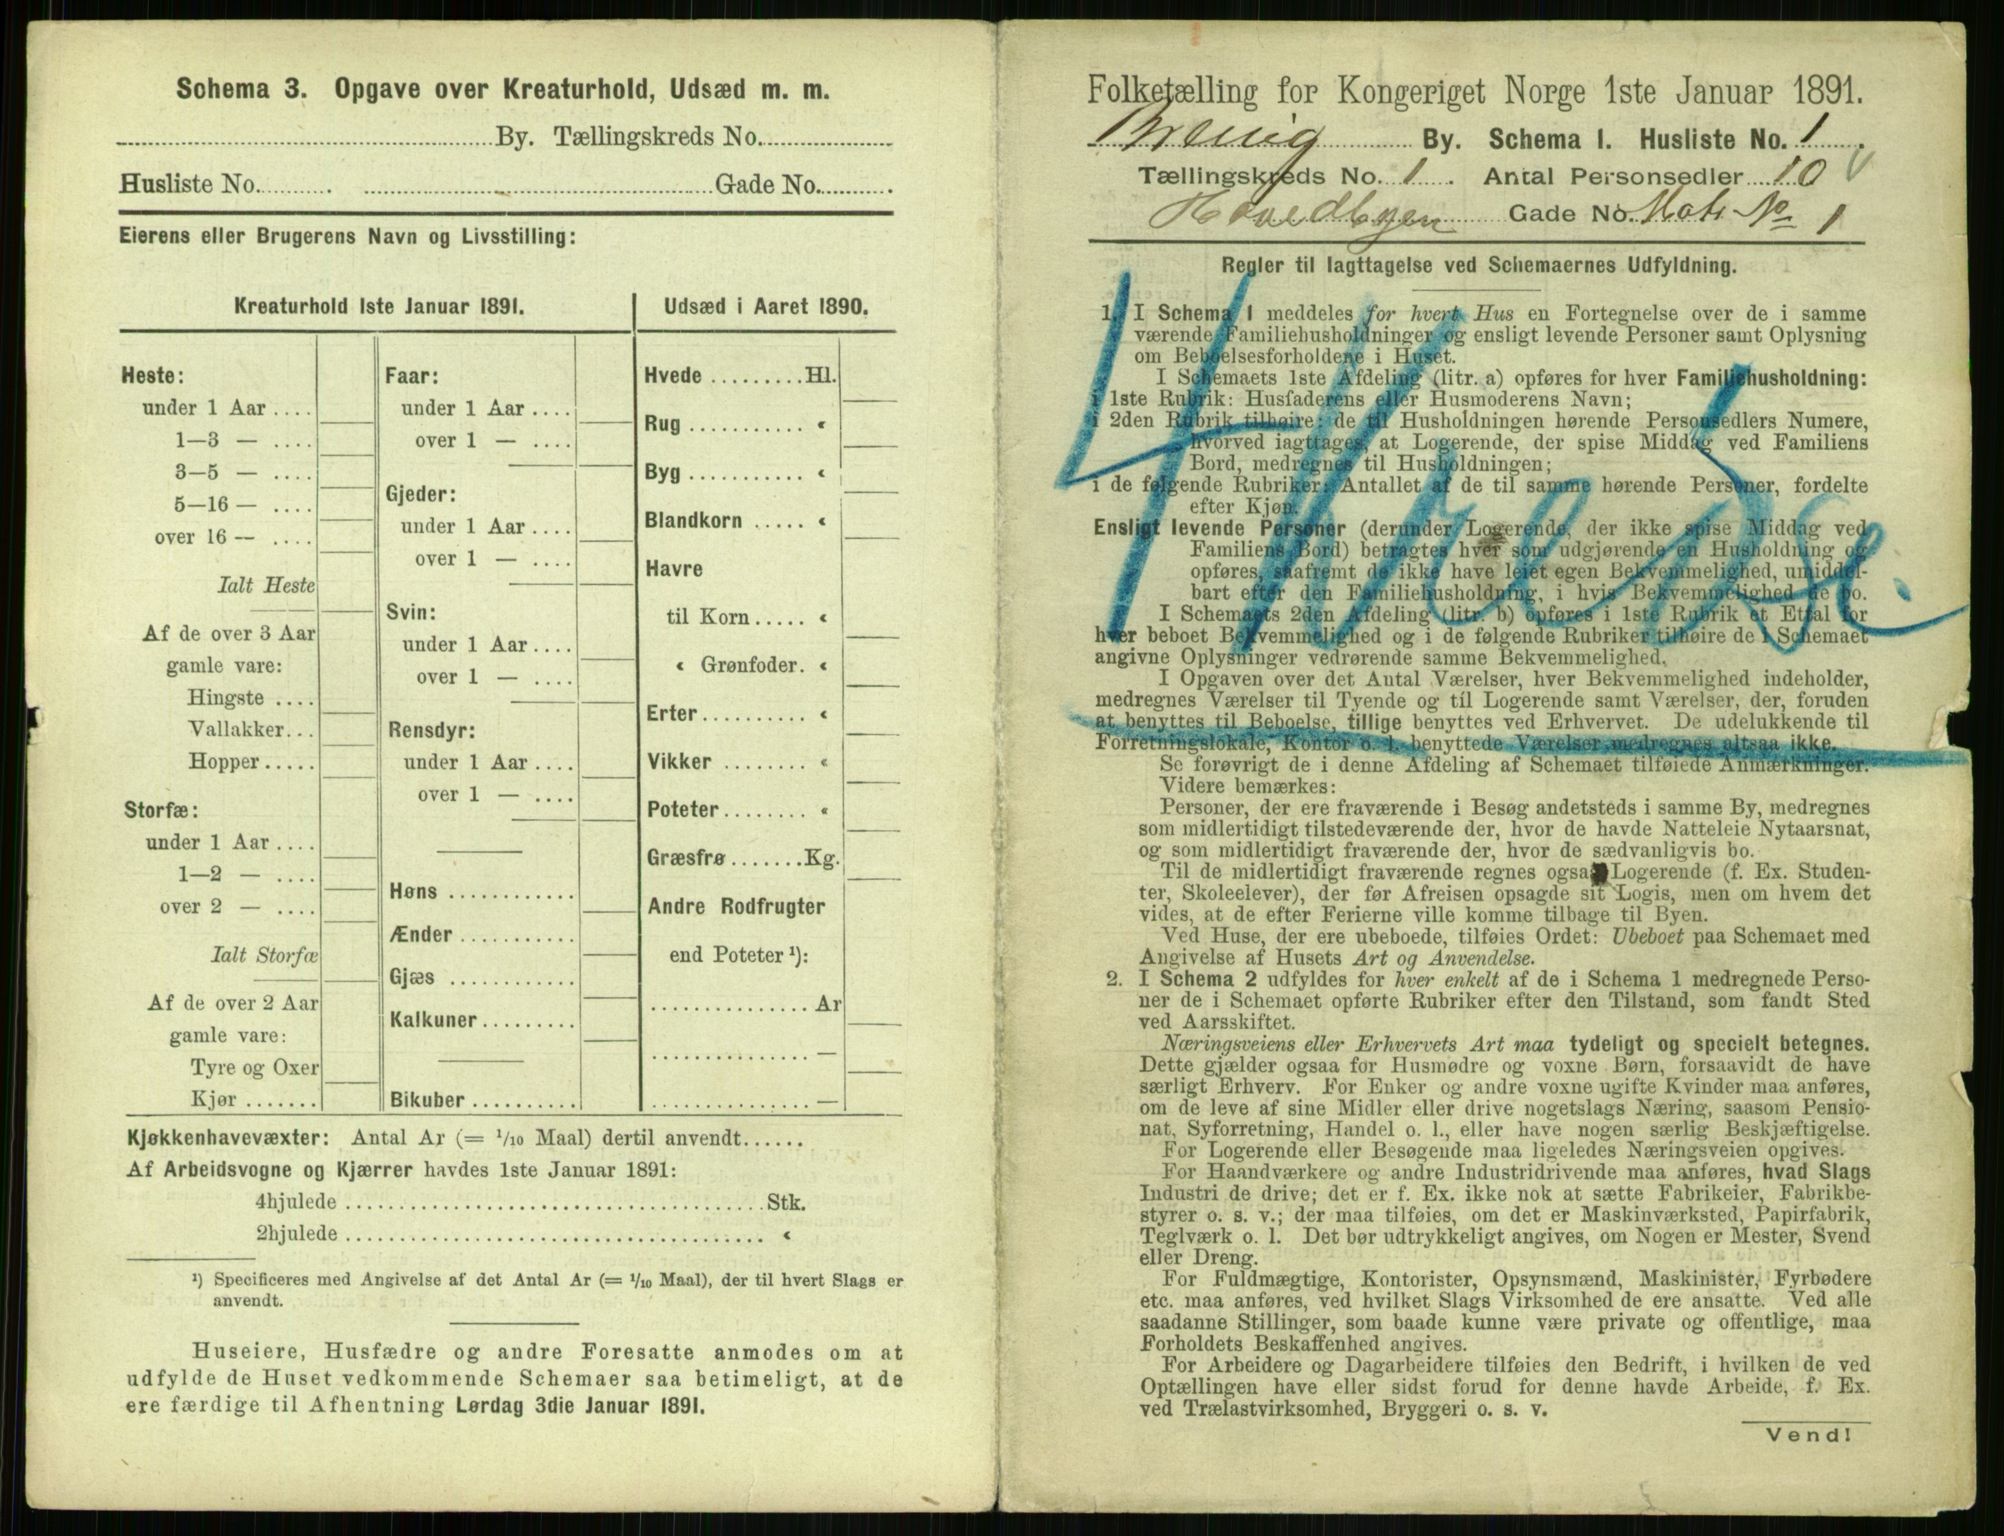 Schema 3. Opgave over Kreaturhold, Udsæd m. m.
By. Tællingskreds No.
Husliste No. Gade No.
Eierens eller Brugerens Navn og Livsstilling:
Kreaturhold 1ste Januar 1891.
Heste:
under 1 Aar ....
1—3 — ....
3—5 — ....
5—16 — ....
over 16 — ....
Ialt Heste
Af de over 3 Aar
gamle vare:
Hingste ....
Vallakker...
Hopper.....
Storfæ:
under 1 Aar ....
1—2 — ....
over 2 — ....
Ialt Storfæ
Af de over 2 Aar
gamle vare:
Tyre og Oxer
Kjør .......
Faar:
under 1 Aar ....
over 1 — ....
Gjeder:
under 1 Aar ....
over 1 — ....
Svin:
under 1 Aar ....
over 1 — ....
Rensdyr:
under 1 Aar ....
over 1 — ....
Høns ............
Ænder ...........
Gjæs ............
Kalkuner.........
Bikuber ..........
Udsæd i Aaret 1890.
Hvede .........Hl.
Rug ........... «
Byg ........... «
Blandkorn ..... «
Havre
til Korn ..... «
« Grønfoder. «
Erter.......... «
Vikker ........ «
Poteter ........ «
Græsfrø .......Kg.
Andre Rodfrugter
end Poteter ¹):
............... Ar
............... —
............... —
Kjøkkenhavevæxter: Antal Ar (= 1/10 Maal) dertil anvendt......
Af Arbeidsvogne og Kjærrer havdes 1ste Januar 1891:
4hjulede ........ Stk.
2hjulede ........ «
¹) Specificeres med Angivelse af det Antal Ar (= 1/10 Maal), der til hvert Slags er
anvendt.
Huseiere, Husfædre og andre Foresatte anmodes om at
udfylde de Huset vedkommende Schemaer saa betimeligt, at de
ere færdige til Afhentning Lørdag 3die Januar 1891.
Folketælling for Kongeriget Norge 1ste Januar 1891.
Brevig By. Schema I. Husliste No. 1
Tællingskreds No. 1 Antal Personsedler 10
Hovedbyen Gade No. Matr No 1
Regler til Iagttagelse ved Schemaernes Udfyldning.
1. I Schema 1 meddeles for hvert Hus en Fortegnelse over de i samme
værende Familiehusholdninger og ensligt levende Personer samt Oplysning
om Beboelsesforholdene i Huset.
I Schemaets 1ste Afdeling (litr. a) opføres for hver Familiehusholdning:
i 1ste Rubrik: Husfaderens eller Husmoderens Navn;
i 2den Rubrik tilhøire: de til Husholdningen hørende Personsedlers Numere,
hvorved iagttages, at Logerende, der spise Middag ved Familiens
Bord, medregnes til Husholdningen;
i de følgende Rubriker: Antallet af de til samme hørende Personer, fordelte
efter Kjøn.
Ensligt levende Personer (derunder Logerende, der ikke spise Middag ved
Familiens Bord) betragtes hver som udgjørende en Husholdning og
opføres, saafremt de ikke have leiet egen Bekvemmelighed, umiddel-
bart efter den Familiehusholdning, i hvis Bekvemmelighed de bo.
I Schemaets 2den Afdeling (litr. b) opføres i 1ste Rubrik et Ettal for
hver beboet Bekvemmelighed og i de følgende Rubriker tilhøire de i Schemaet
angivne Oplysninger vedrørende samme Bekvemmelighed.
I Opgaven over det Antal Værelser, hver Bekvemmelighed indeholder,
medregnes Værelser til Tyende og til Logerende samt Værelser, der, foruden
at benyttes til Beboelse, tillige benyttes ved Erhvervet. De udelukkende til
Forretningslokale, Kontor o. l. benyttede Værelser medregnes altsaa ikke.
Se forøvrigt de i denne Afdeling af Schemaet tilføiede Anmærkninger.
Videre bemærkes:
Personer, der ere fraværende i Besøg andetsteds i samme By, medregnes
som midlertidigt tilstedeværende der, hvor de havde Natteleie Nytaarsnat,
og som midlertidigt fraværende der, hvor de sædvanligvis bo.
Til de midlertidigt fraværende regnes ogsaa Logerende (f. Ex. Studen-
ter, Skoleelever), der før Afreisen opsagde sit Logis, men om hvem det
vides, at de efter Ferierne ville komme tilbage til Byen.
Ved Huse, der ere ubeboede, tilføies Ordet: Ubeboet paa Schemaet med
Angivelse af Husets Art og Anvendelse.
2. I Schema 2 udfyldes for hver enkelt af de i Schema 1 medregnede Perso-
ner de i Schemaet opførte Rubriker efter den Tilstand, som fandt Sted
ved Aarsskiftet.
Næringsveiens eller Erhvervets Art maa tydeligt og specielt betegnes.
Dette gjælder ogsaa for Husmødre og voxne Børn, forsaavidt de have
særligt Erhverv. For Enker og andre voxne ugifte Kvinder maa anføres,
om de leve af sine Midler eller drive nogetslags Næring, saasom Pensio-
nat, Syforretning, Handel o. l., eller have nogen særlig Beskjæftigelse.
For Logerende eller Besøgende maa ligeledes Næringsveien opgives.
For Haandværkere og andre Industridrivende maa anføres, hvad Slags
Industri de drive; det er f. Ex. ikke nok at sætte Fabrikeier, Fabrikbe-
styrer o. s. v.; der maa tilføies, om det er Maskinværksted, Papirfabrik,
Teglværk o. l. Det bør udtrykkeligt angives, om Nogen er Mester, Svend
eller Dreng.
For Fuldmægtige, Kontorister, Opsynsmænd, Maskinister, Fyrbødere
etc. maa anføres, ved hvilket Slags Virksomhed de ere ansatte. Ved alle
saadanne Stillinger, som baade kunne være private og offentlige, maa
Forholdets Beskaffenhed angives.
For Arbeidere og Dagarbeidere tilføies den Bedrift, i hvilken de ved
Optællingen have eller sidst forud for denne havde Arbeide, f. Ex.
ved Trælastvirksomhed, Bryggeri o. s. v.
Vend!